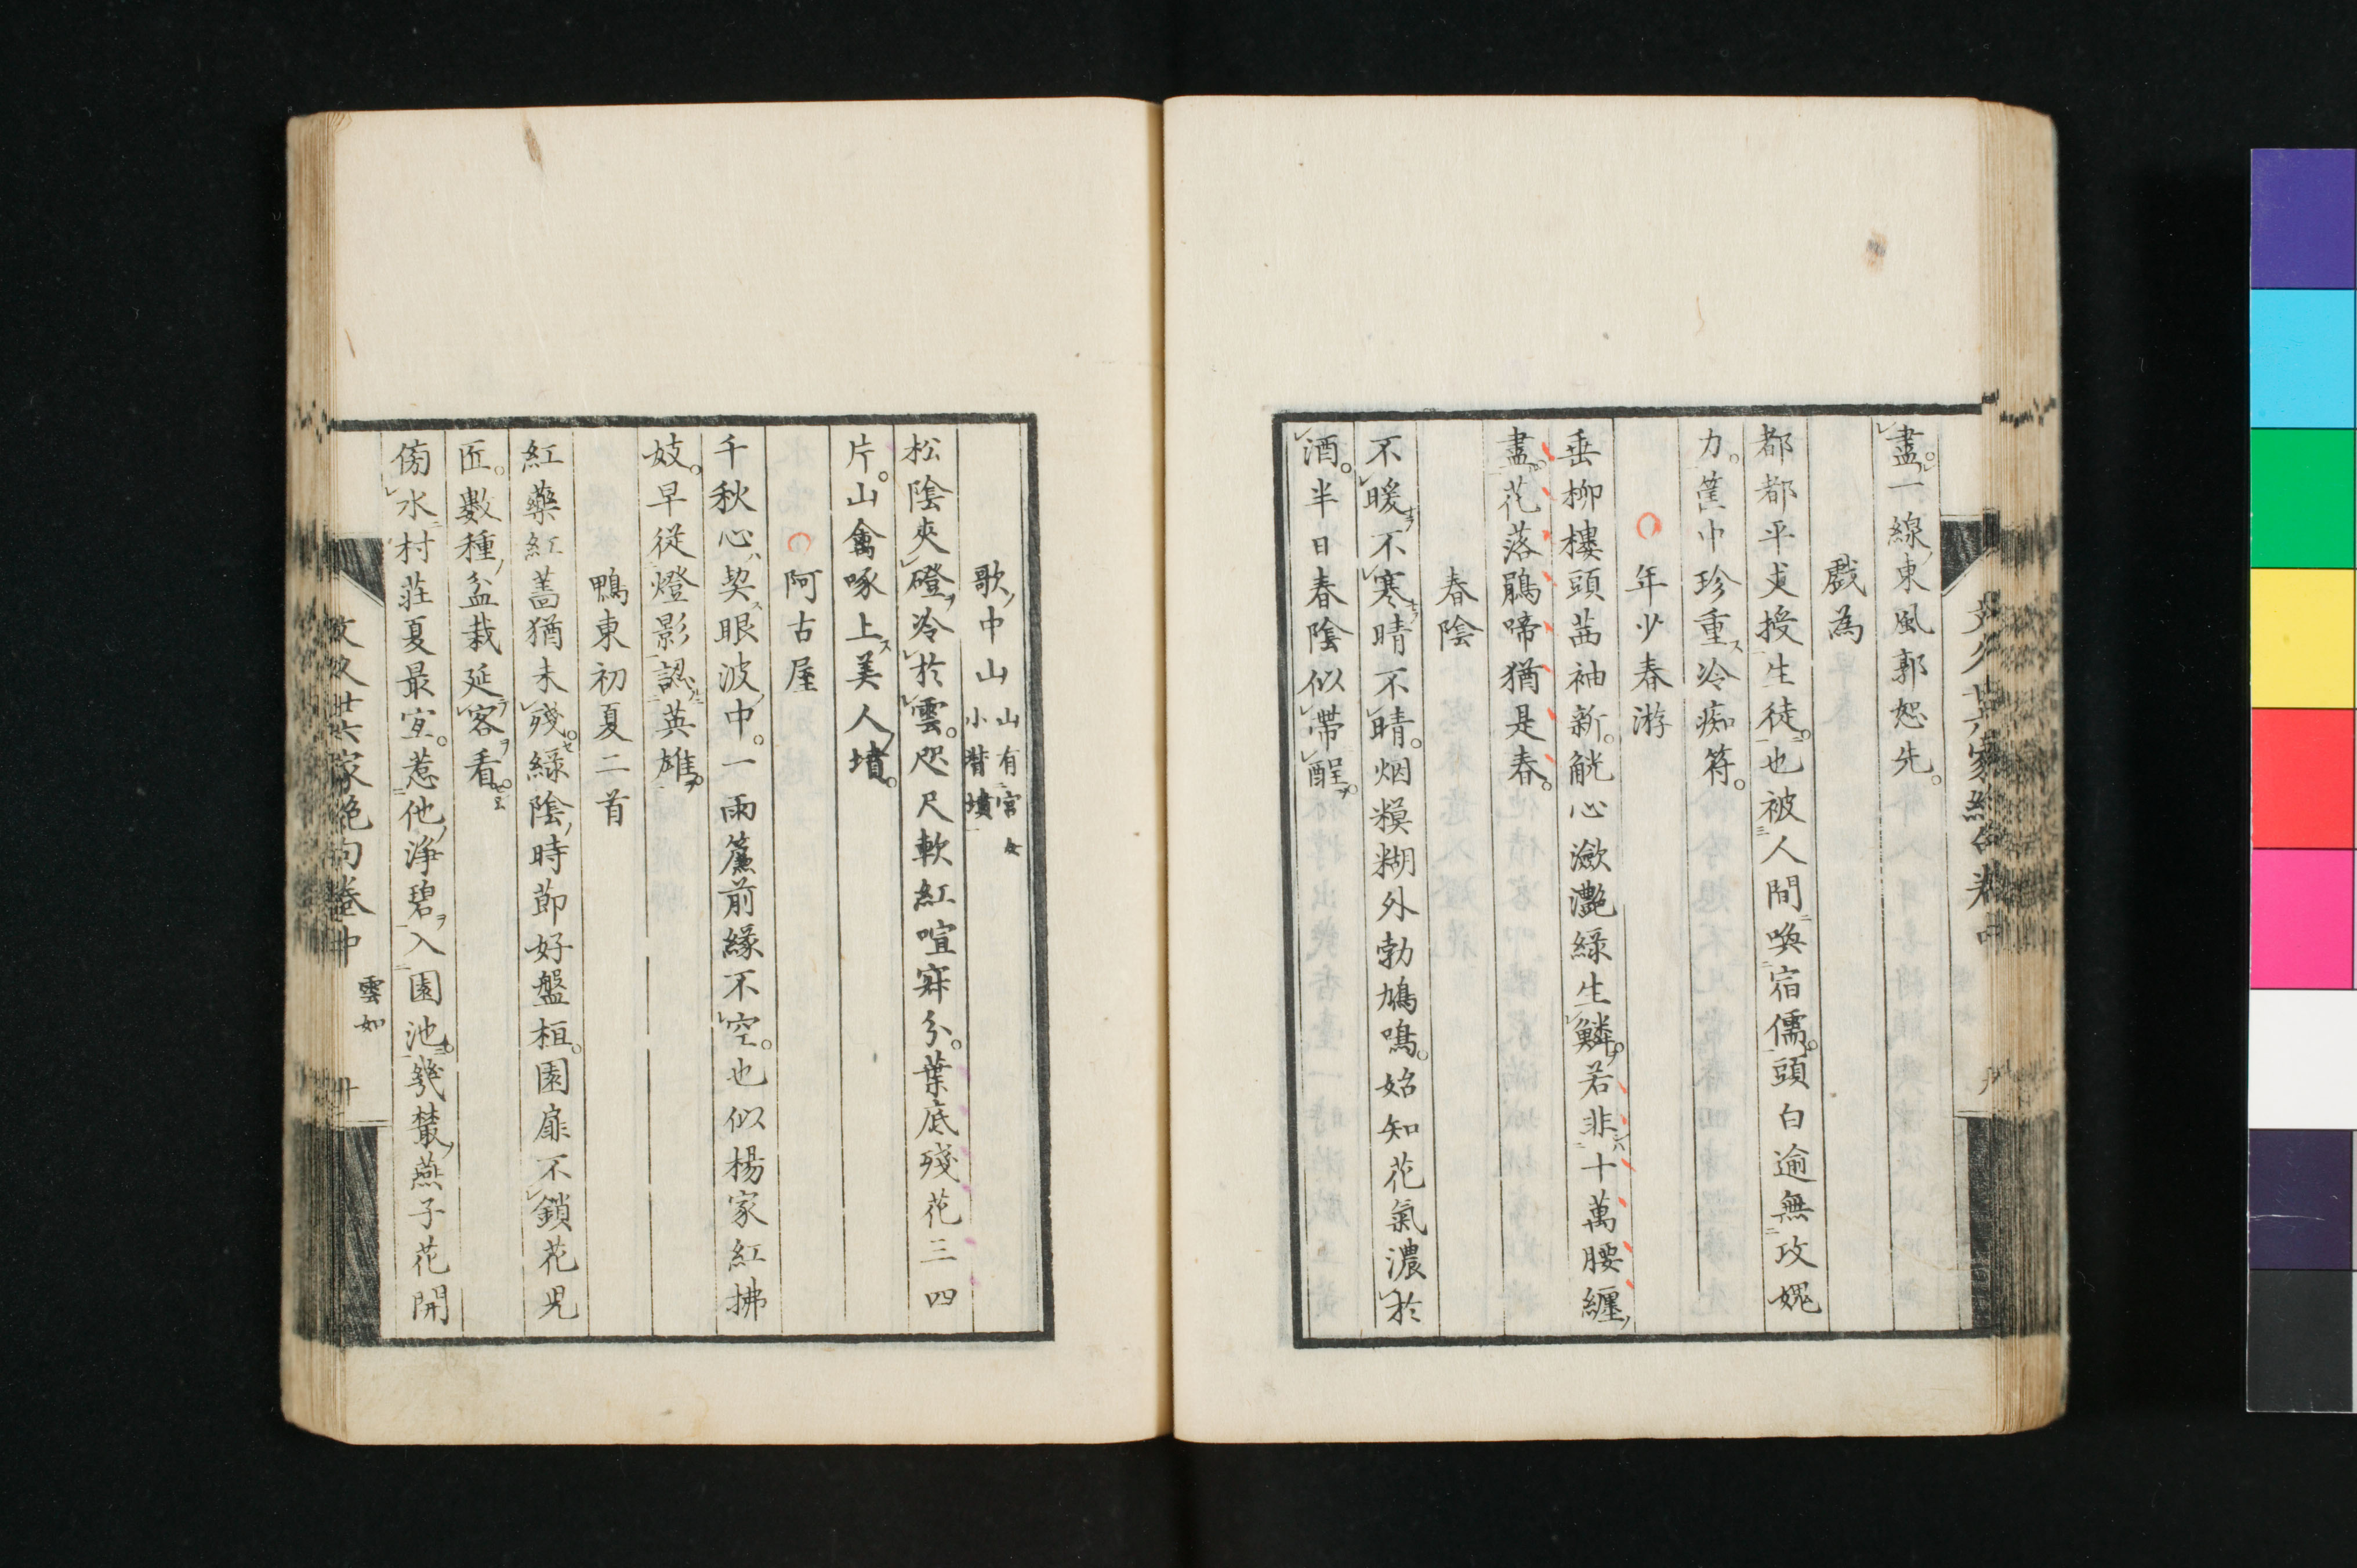 盡一線東風郭恕先
戲為
都都平丈授生徒也被人間喚宿儒頭白逾無攻媿
力篋中珍重冷痴符
年少春游
垂柳樓頭茜袖新觥心瀲灩綠生鱗若非十萬腰纏
盡花落鵑啼猶是春
春陰
不暖不寒晴不晴烟糢糊外勃鳩鳴始知花氣濃於
酒半日春陰似帶酲
歌中山山有宮女小督墳
松陰夾磴冷於雲咫尺軟紅喧寂分葉底殘花三四
片山禽啄上美人墳
阿古屋
千秋心契眼波中一兩簾前緣不空也似楊家紅拂
妓早從燈影認英雄
鴨東初夏二首
紅藥紅薔猶未殘綠陰時節好盤桓園扉不鎖花兒
匠數種盆栽延客看
傍水村莊夏最宜惹他淨碧入園池幾叢燕子花開
文久廿六家絕句卷中
雲如